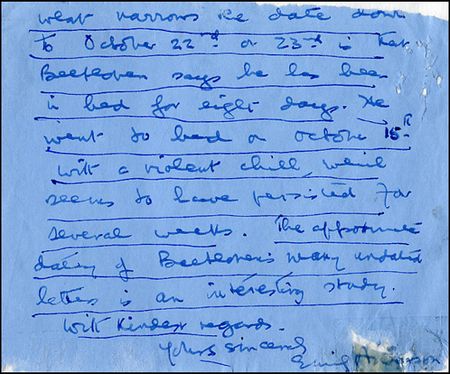 what narrows the date down
to October 22nd or 23rd is that
Beethoven says he has been
in bed for eight days. He
went to bed on October 15th
with a violent chill, which
seems to have persisted for
several weeks. The approximate
dating of Beethoven's many undated
letters is an interesting study.
With kindest regards.
Yours sincerely
Emily Anderson